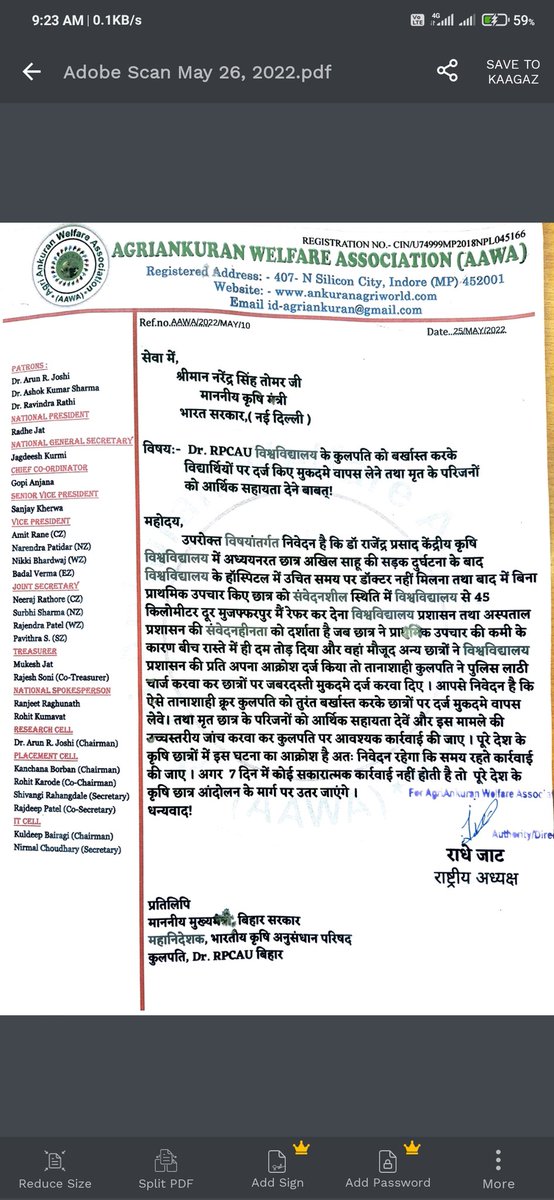 9:23 AM | 0.1KB/s
Vo LTE 4G 59%
Adobe Scan May 26, 2022.pdf
SAVE TO
KAAGAZ
Agri Ankuran Welfare Association
(AAWA)
REGISTRATION NO.- CIN/U74999MP2018NPL045166
AGRIANKURAN WELFARE ASSOCIATION (AAWA)
Registered Address: - 407- N Silicon City, Indore (MP) 452001
Website: - www.ankuranagriworld.com
Email id-agriankuran@gmail.com
Ref.no.AAWA/2022/MAY/10
Date..25/MAY/2022
PATRONS :
Dr. Arun R. Joshi
Dr. Ashok Kumar Sharma
Dr. Ravindra Rathi
NATIONAL PRESIDENT
Radhe Jat
NATIONAL GENERAL SECRETARY
Jagdeesh Kurmi
CHIEF CO-ORDINATOR
Gopi Anjana
SENIOR VICE PRESIDENT
Sanjay Kherwa
VICE PRESIDENT
Amit Rane (CZ)
Narendra Patidar (NZ)
Nikki Bhardwaj (WZ)
Badal Verma (EZ)
JOINT SECRETARY
Neeraj Rathore (CZ)
Surbhi Sharma (NZ)
Rajendra Patel (WZ)
Pavithra S. (SZ)
TREASURER
Mukesh Jat
Rajesh Soni (Co-Treasurer)
NATIONAL SPOKESPERSON
Ranjeet Raghunath
Rohit Kumavat
RESEARCH CELL
Dr. Arun R. Joshi (Chairman)
PLACEMENT CELL
Kanchana Borban (Chairman)
Rohit Karode (Co-Chairman)
Shivangi Rahangdale (Secretary)
Rajdeep Patel (Co-Secretary)
IT CELL
Kuldeep Bairagi (Chairman)
Nirmal Choudhary (Secretary)
सेवा में,
श्रीमान नरेंद्र सिंह तोमर जी
माननीय कृषि मंत्री
भारत सरकार,( नई दिल्ली )
विषय:- Dr. RPCAU विश्वविद्यालय के कुलपति को बर्खास्त करके
विद्यार्थियों पर दर्ज किए मुकदमे वापस लेने तथा मृत के परिजनों
को आर्थिक सहायता देने बाबत्!
महोदय,
उपरोक्त विषयांतर्गत निवेदन है कि डॉ राजेंद्र प्रसाद केंद्रीय कृषि
विश्वविद्यालय में अध्ययनरत छात्र अखिल साहू की सड़क दुर्घटना के बाद
विश्वविद्यालय के हॉस्पिटल में उचित समय पर डॉक्टर नहीं मिलना तथा बाद में बिना
प्राथमिक उपचार किए छात्र को संवेदनशील स्थिति में विश्वविद्यालय से 45
किलोमीटर दूर मुजफ्फरपुर मैं रेफर कर देना विश्वविद्यालय प्रशासन तथा अस्पताल
प्रशासन की संवेदनहीनता को दर्शाता है जब छात्र ने प्राथमिक उपचार की कमी के
कारण बीच रास्ते में ही दम तोड़ दिया और वहां मौजूद अन्य छात्रों ने विश्वविद्यालय
प्रशासन की प्रति अपना आक्रोश दर्ज किया तो तानाशाही कुलपति ने पुलिस लाठी
चार्ज करवा कर छात्रों पर जबरदस्ती मुकदमे दर्ज करवा दिए । आपसे निवेदन है कि
ऐसे तानाशाही क्रूर कुलपति को तुरंत बर्खास्त करके छात्रों पर दर्ज मुकदमे वापस
लेवे। तथा मृत छात्र के परिजनों को आर्थिक सहायता देवें और इस मामले की
उच्चस्तरीय जांच करवा कर कुलपति पर आवश्यक कार्रवाई की जाए । पूरे देश के
कृषि छात्रों में इस घटना का आक्रोश है अतः निवेदन रहेगा कि समय रहते कार्रवाई
की जाए। अगर 7 दिन में कोई सकारात्मक कार्रवाई नहीं होती है तो पूरे देश के
कृषि छात्र आंदोलन के मार्ग पर उतर जाएंगे ।
धन्यवाद!
For AgriAnkuran Welfare Associat
Authority/Direc
राधे जाट
राष्ट्रीय अध्यक्ष
प्रतिलिपि
माननीय मुख्यमंत्री, बिहार सरकार
महानिदेशक, भारतीय कृषि अनुसंधान परिषद
कुलपति, Dr. RPCAU बिहार
(AAWA)
Reduce Size
Split PDF
Add Sign
Add Password
More